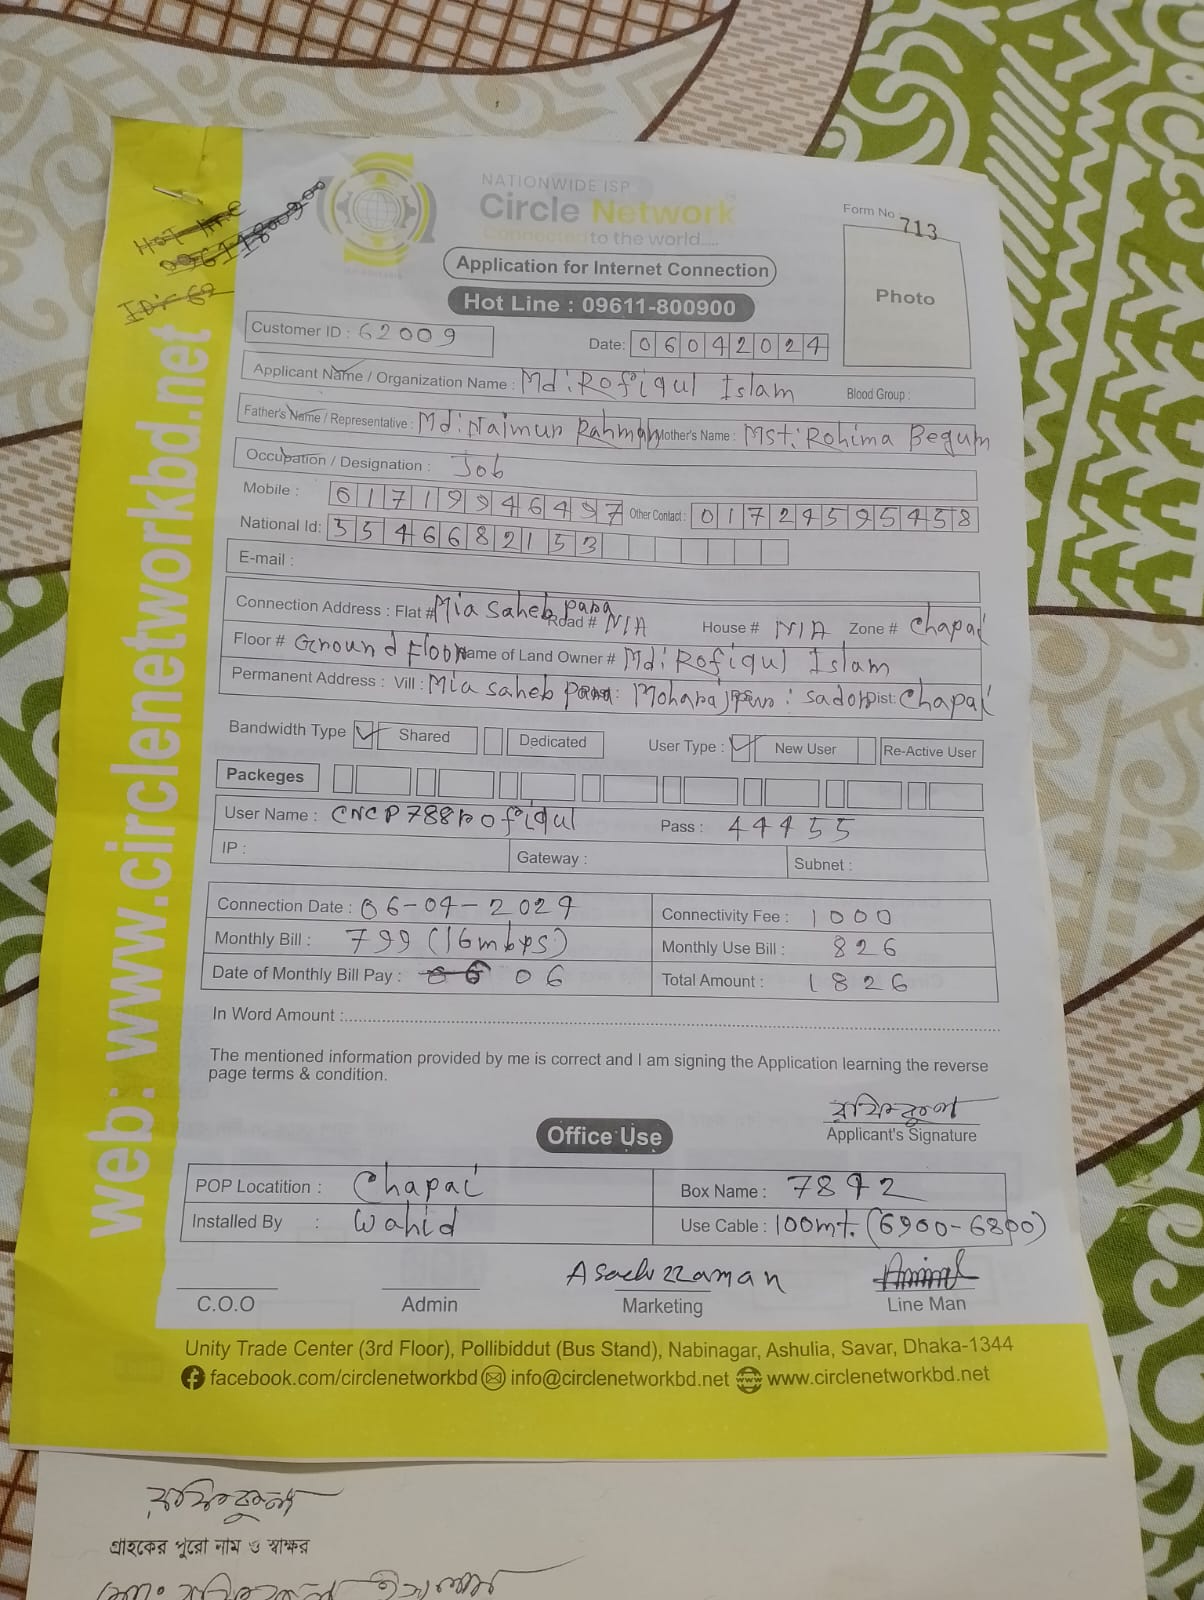 NATIONWIDE ISP
Circle Network
Connected to the world....
Form No 713
Photo
Hot line
09611800900
ID: 62
Application for Internet Connection
Hot Line : 09611-800900
Customer ID : 62009
Date: 06042024
Applicant Name / Organization Name : Md: Rofiqul Islam Blood Group :
Father's Name / Representative : Md: Naimur Rahman Mother's Name : Mst: Rohima Begum
Occupation / Designation : Job
Mobile : 01719946497 Other Contact : 01724595458
National Id: 3546682153
E-mail :
Connection Address : Flat # Mia Saheb para Road # N/A House # N/A Zone # Chapai
Floor # Ground Floor Name of Land Owner # Md: Rofiqul Islam
Permanent Address : Vill : Mia Saheb Para Moharajpur : sador Dist: Chapai
Bandwidth Type Shared Dedicated User Type : New User Re-Active User
Packeges
User Name : CNCP788rofiqul Pass : 44455
IP : Gateway : Subnet :
Connection Date : 06-04-2024 Connectivity Fee : 1000
Monthly Bill : 799 (16mbps) Monthly Use Bill : 826
Date of Monthly Bill Pay : 06 Total Amount : 1826
In Word Amount :
The mentioned information provided by me is correct and I am signing the Application learning the reverse
page terms & condition.
রফিকুল
Applicant's Signature
Office Use
POP Locatition : Chapai Box Name : 7842
Installed By : Wahid Use Cable : 100mt. (6900-6800)
Asaduzzaman
C.O.O Admin Marketing Line Man
Unity Trade Center (3rd Floor), Pollibiddut (Bus Stand), Nabinagar, Ashulia, Savar, Dhaka-1344
facebook.com/circlenetworkbd info@circlenetworkbd.net www.circlenetworkbd.net
web: www.circlenetworkbd.net
রফিকুল
গ্রাহকের পুরো নাম ও স্বাক্ষর
মো: রফিকুল ইসলাম